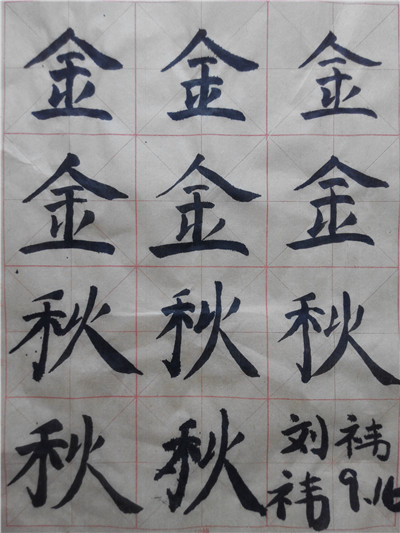 金金金
金金金
秋秋秋
秋秋
刘祎
祎9.16